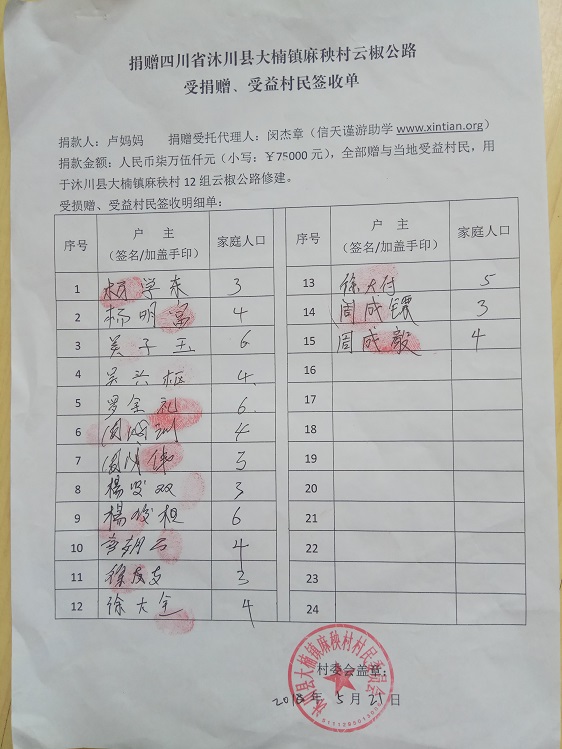 捐赠四川省沐川县大楠镇麻秧村云椒公路
受捐赠、受益村民签收单
捐款人：卢妈妈 捐赠受托代理人：闵杰章（信天谨游助学 www.xintian.org）
捐款金额：人民币柒万伍仟元（小写：￥75000 元），全部赠与当地受益村民，用
于沐川县大楠镇麻秧村 12 组云椒公路修建。
受损赠、受益村民签收明细单：
序号 户 主（签名/加盖手印） 家庭人口 序号 户 主（签名/加盖手印） 家庭人口
1 学 3 13 徐大付 5
2 杨明富 4 14 周成 3
3 吴子玉 6 15 周成毅 4
4 吴兴枢 4 16
5 罗金礼 6 17
6 周 4 18
7 周 3 19
8 楊 双 3 20
9 楊 6 21
10 4 22
11 徐 3 23
12 徐大全 4 24
村委会盖章：
2018 年 5 月 21 日
沐川县大楠镇麻秧村村民委员会